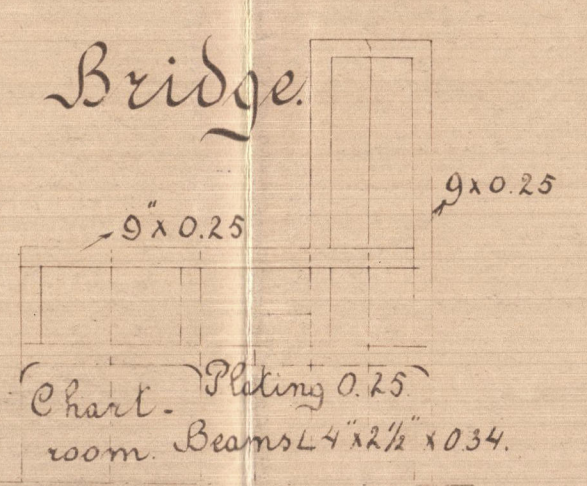 Bridge.
9 x 0.25
9" x 0.25
Plating 0.25
Chart-
room. Beams L 4" x 2½" x 034.